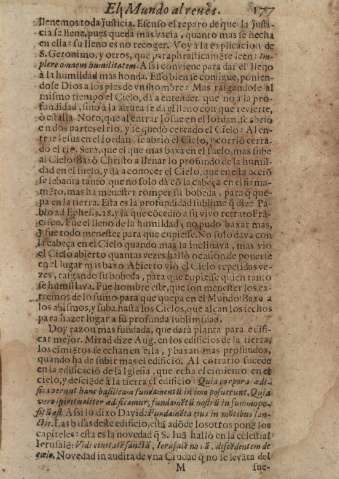 El Mundo al revès. 177
llenemos toda justicia. Escuso el reparo de que la Justi-
cia se llene, pues queda mas vacia, quanto mas se hecha
en ella: su lleno es no recoger. Voy a la explicacion de
S. Geronimo, y otros, que paraphrasticamẽte leen: Im-
plere omnem humilitatem. Assi conviene para dar el lleno
a la humildad mas honda. Esso bien se consigue, ponien-
dose Dios a los pies de vn hombre: Mas raigandose al
mismo tiempo el Cielo, dà a entender que no a la pro-
fundidad, sino a la altura se dà el lleno con que revierte,
ò estalla. Noto, que al entrar Josue en el Jordan, se abriò
en dos partes el rio, y le quedò cerrado el Cielo: Al en-
trar Jesus en el Jordan, se abriò el Cielo, y corriò cerra-
do el rio. Serà, que el que mas baxa en el suelo, mas sube
al Cielo: Baxò Christo a llenar lo profundo de la humil-
dad en el suelo, y dà a conocer el Cielo, que en ella
se lebanta tanto que no solo dà cõ la cabeça en el
mas ha menester romper su bobeda, para q̃
pa en la tierra. Esta es la profundidad sublime q̃ dize Pa-
blo ad Ephes. 3. 18. y la que cõcediò a su vivo retrato Frã-
cisco. Fue el lleno de la humildad, y no pudo baxar mas,
y fue todo menester para que cupiesse. No solo dava con
la cabeça en el Cielo quando mas la inclinava, mas viò
el Cielo abierto quantas vezes hallò ocasion de ponerse
en el lugar mas baxo. Abierto viò el Cielo repetidas ve-
zes, raigando su boboda, para que cupiesse quien tanto
se humillava. Fue hombre este, que son menester los ex-
tremos de lo sumo para que quepa en el Mundo: Baxò a
los abismos, y suba hasta los Cielos, que alcan los techos
para hazer lugar a su profunda sublimidad.
Doy razon mas fundada, que darà planta para edifi-
car mejor. Mirad dize Aug. en los edificios de la tierra,
los cimientos se echan en ella, y baxan mas profundos,
quando ha de subir mas el edificio. Al contrario sucede
en la edificaciõ de la Iglesia, que echa el cimiento en el
cielo, y desciẽde a la tierra el edificio: Quia corpora-
si averint hanc basilicam fundamentũ in imo posuerunt. Quia
verò spiritualiter ædificamur, fundamentũ nostrũ in summo po-
sitũ est. Assi lo dixo David: Fundamẽta eius in montibus sanc-
tis. Las basas deste edificio, està adõde los otros ponẽ los
capiteles: esta es la novedad q̃ S. Iuã hallò en la celestial
Jerusalẽ: Vidi civit. sanctã, Ierusalẽ novã, descendentem de
cœlo. Novedad inaudita de vna Ciudad q̃ no se levãta del
M sue-